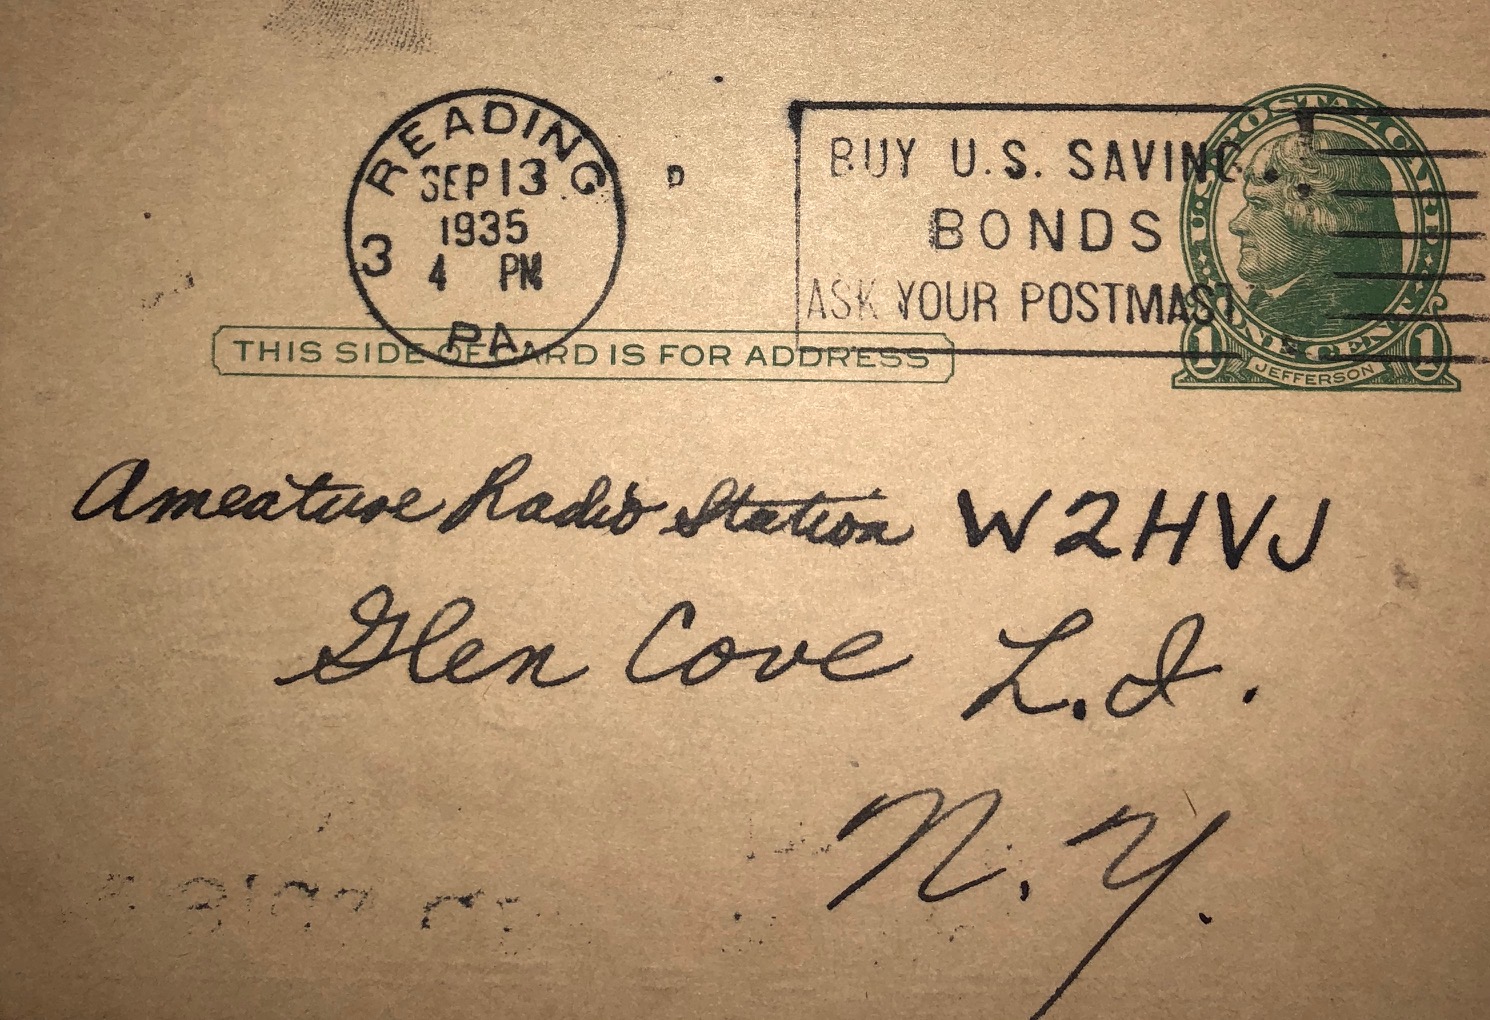 READING
SEP 13
1935
4 PM
3
PA
D
BUY U.S. SAVING
BONDS
ASK YOUR POSTMAST
U.S. POSTAL CARD
ONE CENT
1 JEFFERSON 1
THIS SIDE OF CARD IS FOR ADDRESS
Ameature Radio Station W2HVJ
Glen Cove L.I.
N.Y.